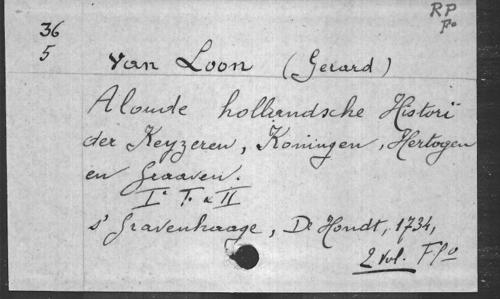 RP
Fo
36
5
Van Loon (Gerard)
Aloude hollandsche Histori
der Keyzeren, Koningen, Hertogen
en Graaven.
I° T. & II
s' Gravenhaage, De Hondt, 1734,
2 vol. Fo